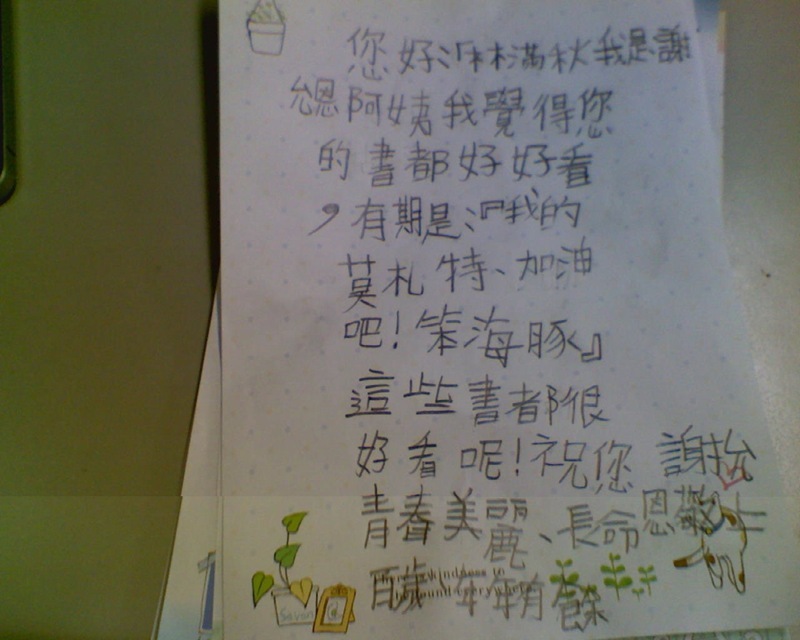 您好!林滿秋我是謝
恩阿姨我覺得您
的書都好好看
,有期是:『我的
莫札特、加油
吧!笨海豚』
這些書都很
好看呢!祝您
青春美麗、長命
百歲 年年有餘
謝抬
恩敬上
Savon